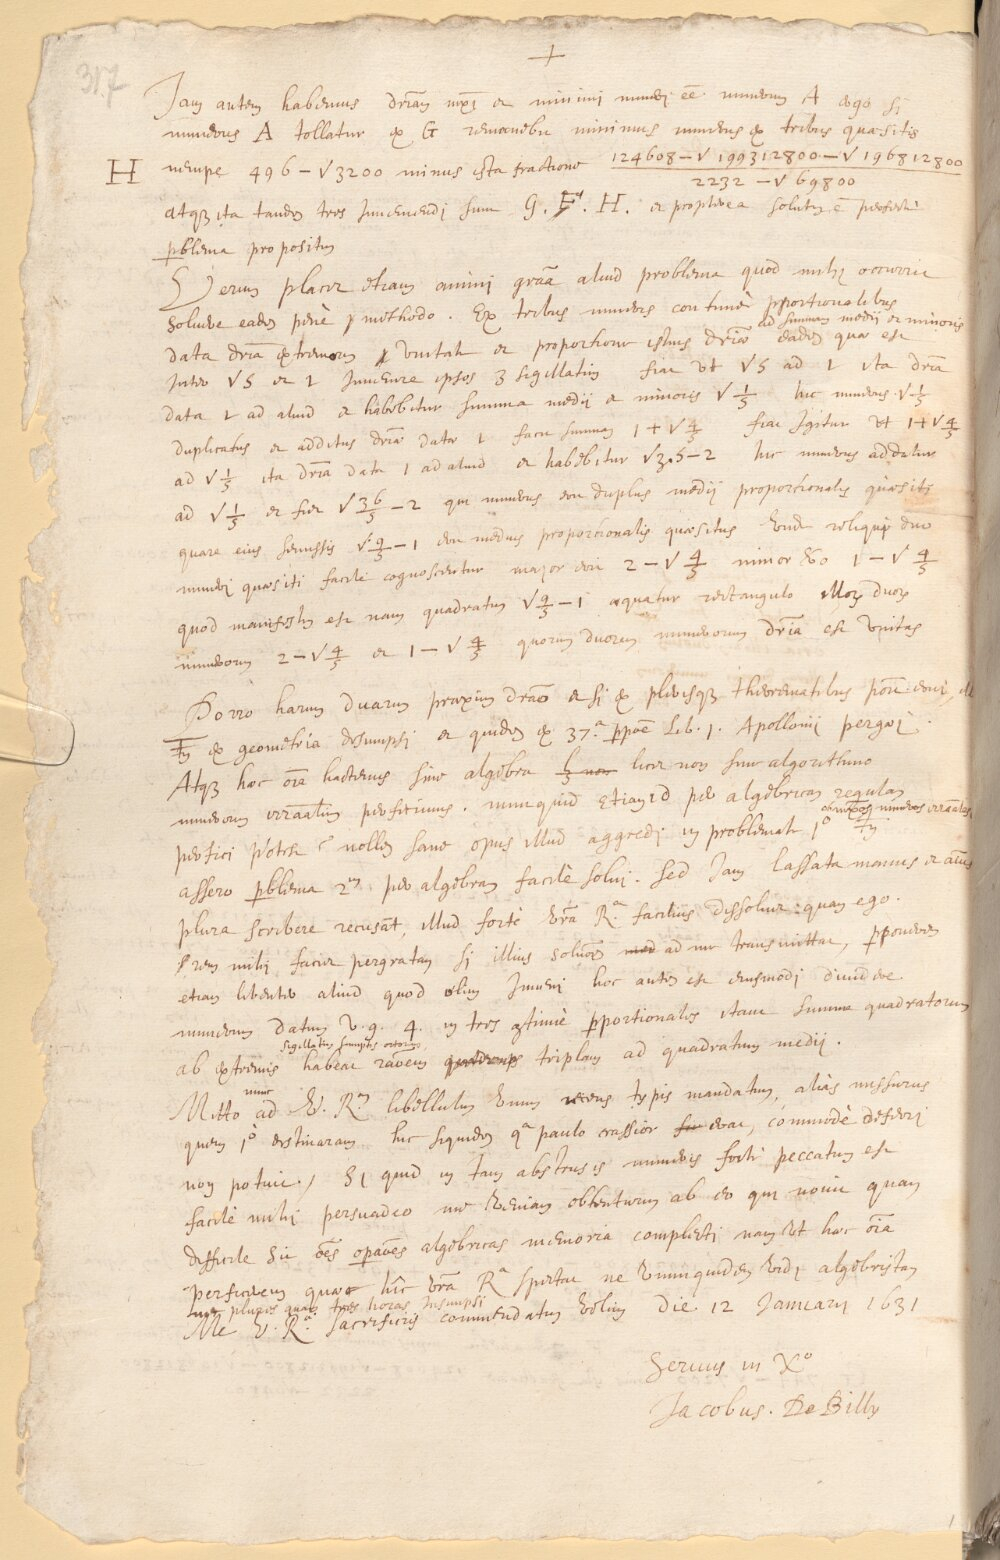 317
+
Jam autem habemus dr̃iam maxi et minimi numeri eē numerum A ergo si
numerus A tollatur ex G remanebit minimus numerus ex tribus quæsitis
H nempe 496 − √3200 minus ista fractione 124608 − √199312800 − √196812800 / 2232 − √69800
atq₃ ita tandem tres Inueniendi sunt G. F. H. et propterea solutũ ē perfectè
p̃blema propositum
Verum placet etiam animi grãa aliud problema quod mihi occurrit
soluere eadem penè methodo. Ex tribus numeris continuè pportionalibus
data dr̃ia extremorum unitate et proportione istius dr̃iæ ad summam medii et minoris eadem quæ est
Inter √5 et 1 Inuenire ipsos 3 sigillatim fiat ut √5 ad 1 ita dr̃ia
data 1 ad aliud et habebitur summa medii et minoris √1/5 hic numerus √1/5
duplicatus et additus dr̃iæ datæ 1 facit summam 1+√4/5 fiat Igitur ut 1+√4/5
ad √1/5 ita dr̃ia data 1 ad aliud et habebitur √5−2 hic numerus addatur
ad √1/5 et fiet √36/5 − 2 qui numerus erit duplus medii proportionalis quæsiti
quare eius semissis √9/5 − 1 erit medius proportionalis quæsitus unde reliqui duo
numeri quæsiti facile cognoscentur major erit 2 − √4/5 minor vero 1 − √4/5
quod manifestum est nam quadratum √9/5 − 1 æquatur rectangulo illorum duorum
numerorum 2 − √4/5 et 1 − √4/5 quorum duorum numerorum dr̃ia est unitas
Porro harum duarum praxium dr̃ao etsi ex plerisq₃
tn̄ ex geometria desumpsi et quidem ex 37.ª ppōe Lib. 1. Apollonii pergæi.
Atq₃ hæc om̃ia hactenus sine algebra licet non sine algorithmo
numerorum irrãalium perficimus. numquid etiam id per algebricam regulam
perfici potest? nollem sane opus illud aggredi in problemate 1º ob numeros irrãales
assero p̃blema 2m per algebram facile solui. sed Jam lassata manus et aĩus
plura scribere recusãt, illud fortè vr̃a R.ª facilius dissoluet quam ego.
rem mihi faciet pergratam si illius solũem ad me transmittat, pponerem
etiam libenter aliud quod olim Inueni hoc autem est eiusmodi diuidere
numerum datum v.g. 4. in tres continuè pportionales ita ut summa quadratorum
ab extremis sigillatim sumptis habeat rãoem triplam ad quadratum medii.
Mitto nunc ad V. R.m libellulum unum typis mandatum, aliàs missurus
quem 1º destinaram hic siquidem qª paulo crassior erat, commodè deferri
non potuit. Si quid in tam abstrusis numeris fortè peccatum est
facile mihi persuadeo me veniam obtenturum ab eo qui nouit quam
difficile sit oẽs opãoẽs algebricas memoria complecti nam ut hæc oĩa
perficerem quæ hîc vr̃a R.ª spectat ne unum quidem vidi algebristam
nec pluris quam tres horas Insumpsi
Me V. R.æ sacrificiis commendatum velim die 12 Januarii 1631
Seruus in Xº
Jacobus. De Billy